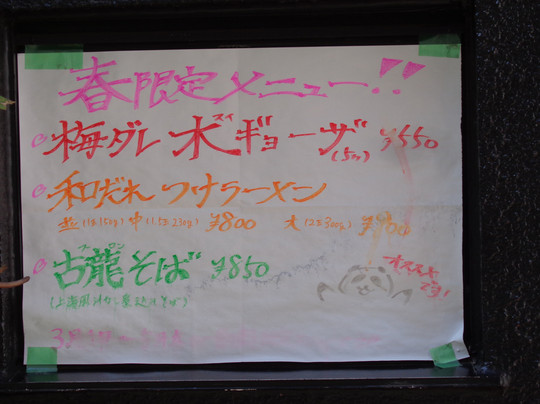 春限定メニュー!!
梅ダレ水ギョーザ ¥550
スイ
(5ヶ)
和だれ つけラーメン
並(1玉150g) 中(1.5玉230g) ¥800 大(2玉300g) ¥900
古龍そば ¥850
オススメです!